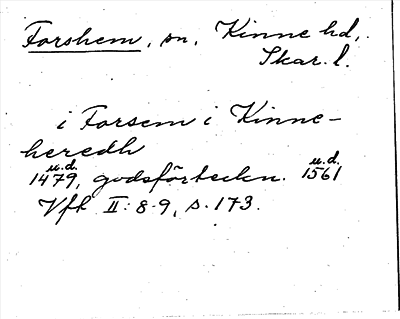 Forshem, sn, Kinne hd,.
Skar. l.
i Forsem i Kinne-
heredh
u.d. u.d.
1479, godsförteckn. 1561
Vft II: 8-9, s. 173.